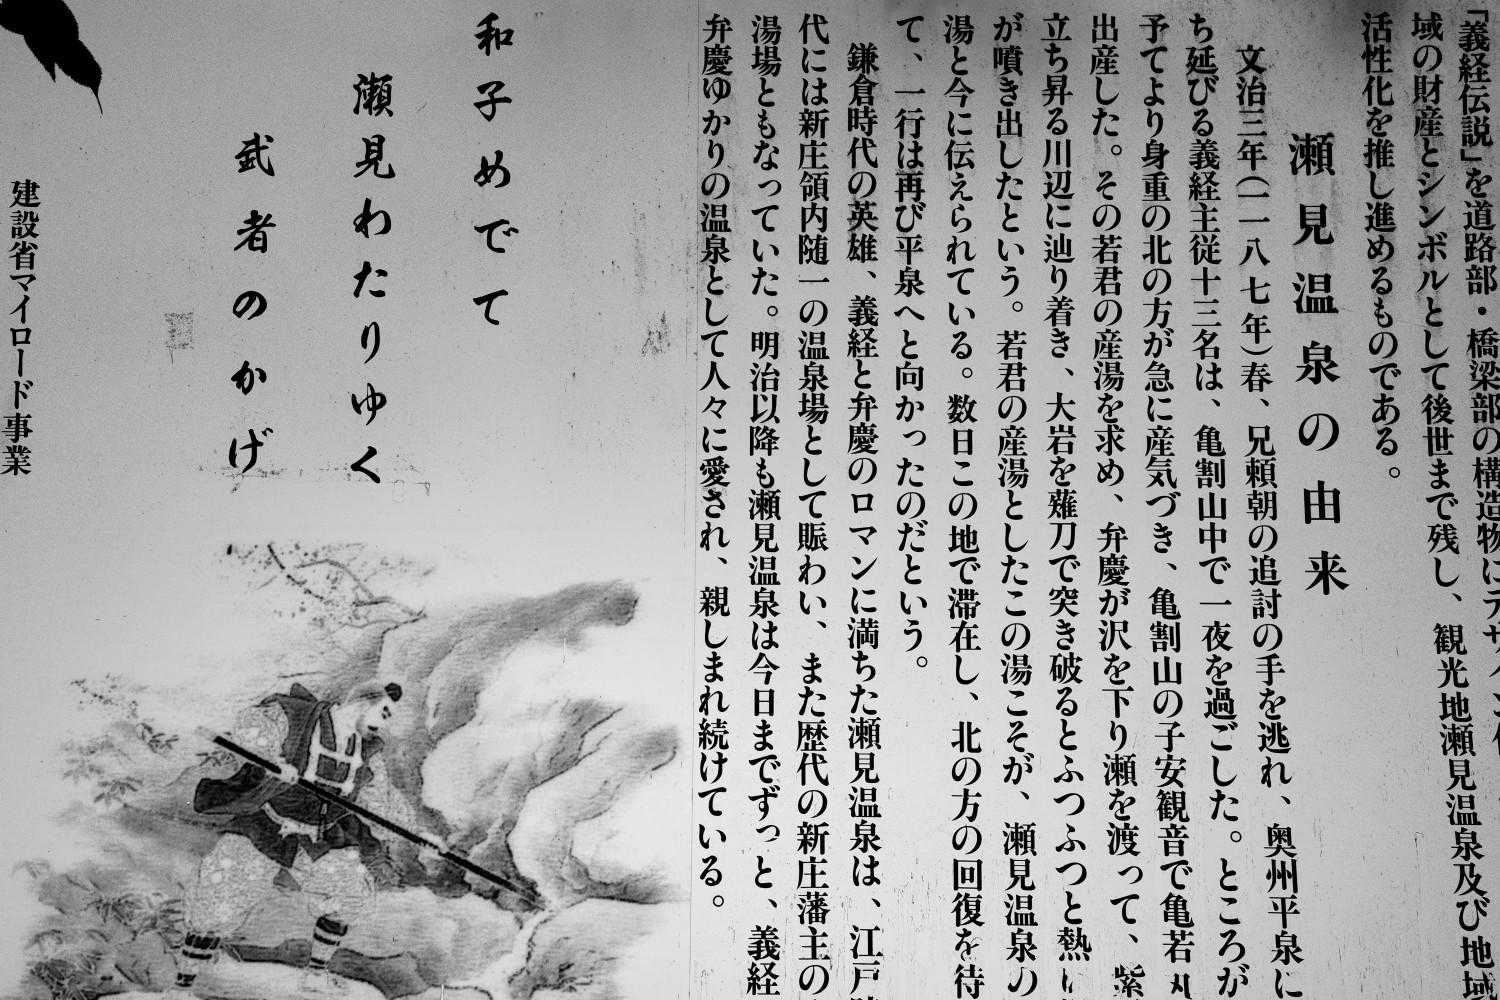 「義経伝説」を道路部・橋梁部の構造物にデザイン
域の財産とシンボルとして後世まで残し、観光地瀬見温泉及び地域
活性化を推し進めるものである。
瀬見温泉の由来
文治三年(一一八七年)春、兄頼朝の追討の手を逃れ、奥州平泉に
ち延びる義経主従十三名は、亀割山中で一夜を過ごした。ところが
予てより身重の北の方が急に産気づき、亀割山の子安観音で亀若丸
出産した。その若君の産湯を求め、弁慶が沢を下り瀬を渡って、紫
立ち昇る川辺に辿り着き、大岩を薙刀で突き破るとふつふつと熱い
が噴き出したという。若君の産湯としたこの湯こそが、瀬見温泉の
湯と今に伝えられている。数日この地で滞在し、北の方の回復を待
て、一行は再び平泉へと向かったのだという。
鎌倉時代の英雄、義経と弁慶のロマンに満ちた瀬見温泉は、江戸時
代には新庄領内随一の温泉場として賑わい、また歴代の新庄藩主の
湯場ともなっていた。明治以降も瀬見温泉は今日までずっと、義経
弁慶ゆかりの温泉として人々に愛され、親しまれ続けている。
和子めでて
瀬見わたりゆく
武者のかげ
建設省マイロード事業